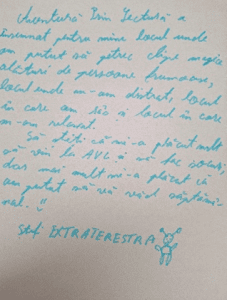 Aventură Prin Lectură a
însemnat pentru mine locul unde
am putut să petrec clipe magice
alături de persoane frumoase,
locul unde m-am distrat, locul
în care am râs și locul în care
m-am relaxat.
Să știți că mi-a plăcut mult
să vin la APL și să fac jocuri,
dar mai mult mi-a plăcut că
am putut să vă văd săptămâ-
nal. !!
EXTRATERESTRA